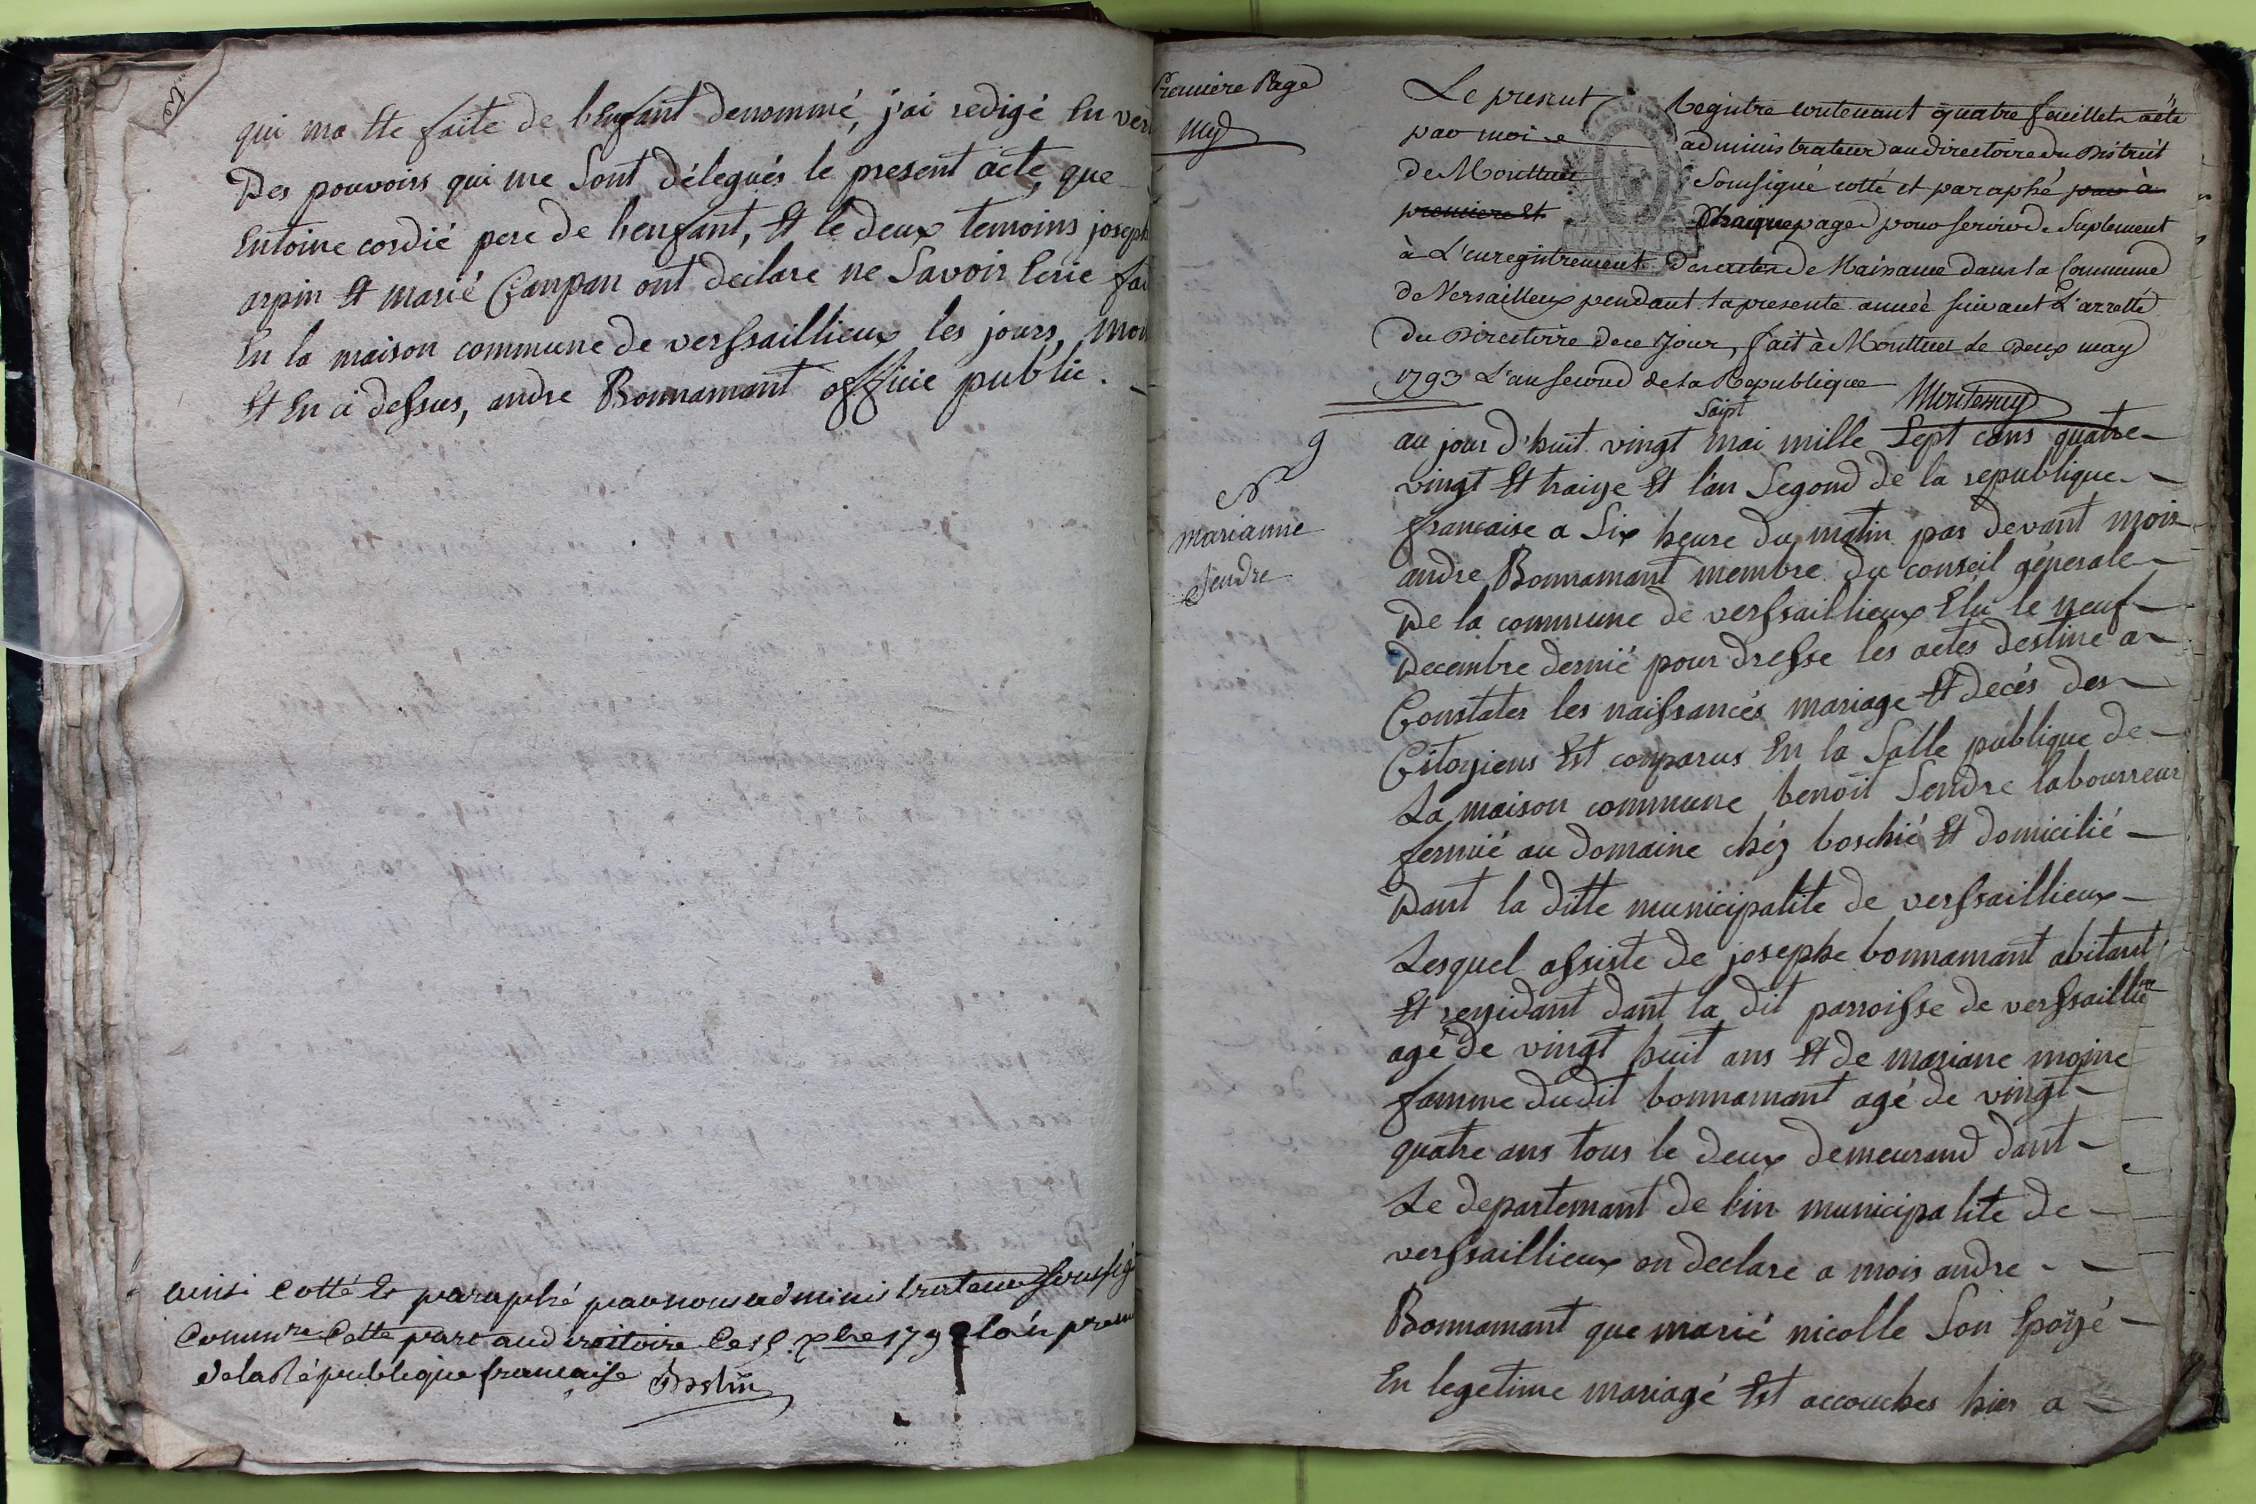 qui ma ete faite de l'enfant denommé, j'ai redigé en ver
Des pouvoirs qui me sont délegués le present acte, que
Entoine cordié pere de l'enfant, et le deux temoins joseph
arpin et marié Campan ont declare ne savoir Ecrie fai
En la maison commune de versaillieux les jours, moi
et en ci dessus, andre Bonnamant officie public.
ainsi cotté et paraphé par nous administrateur soussigé
de la république française
Premiere Page
Le present Registre contenant quatre feuillets a été
par moi administrateur au directoire du District
de Montluel soussigné cotté et paraphé par à
premiere et chaique page pour servir de suplement
à L'enregistrement des actes de Naissance dans la Commune
de Versailleux pendant la presente année suivant L'arretté
du Directoire de ce jour, fait à Montluel le Deux may
1793 L'an second de la Republique Montessuy
9
N
marianne
Sendre
sept
au jour d'huit vingt mai mille sept cans quatre
vingt et traize et l'an segond de la republique
francaise a six heure du matin par devant mois
andre Bonnamant membre du conseil génerale
De la commune de versaillieux Elu le neuf
Decembre dernié pour dresse les actes destine a
Constater les naissancés mariage et decés des
Citoyiens est comparus en la salle publique de
La maison commune benoit Sendre labourreur
fermié au domaine chéz boschié et domicilié
Dant la ditte municipalite de versaillieux
Lesquel assiste de josephe bonnamant abitant
et rezidant dant la dit parroisse de versaillieux
agé de vingt huit ans et de mariane moine
famme dudit bonnamant agé de vingt
quatre ans tous le deux demeurand dant
Le departemant de l'in municipalite de
versaillieux on declare a mois andre
Bonnamant que marié nicolle son Epozé
En legetime mariagé est accouches hier a